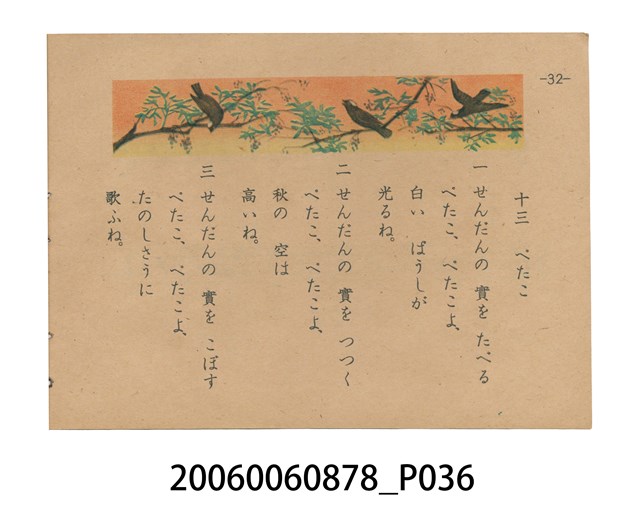 -32-
十三 ぺたこ
一 せんだんの 實を たべる
ぺたこ、ぺたこよ、
白い ばうしが
光るね。
二 せんだんの 實を つつく
ぺたこ、ぺたこよ、
秋の 空は
高いね。
三 せんだんの 實を こぼす
ぺたこ、ぺたこよ、
たのしさうに
歌ふね。
20060060878_P036